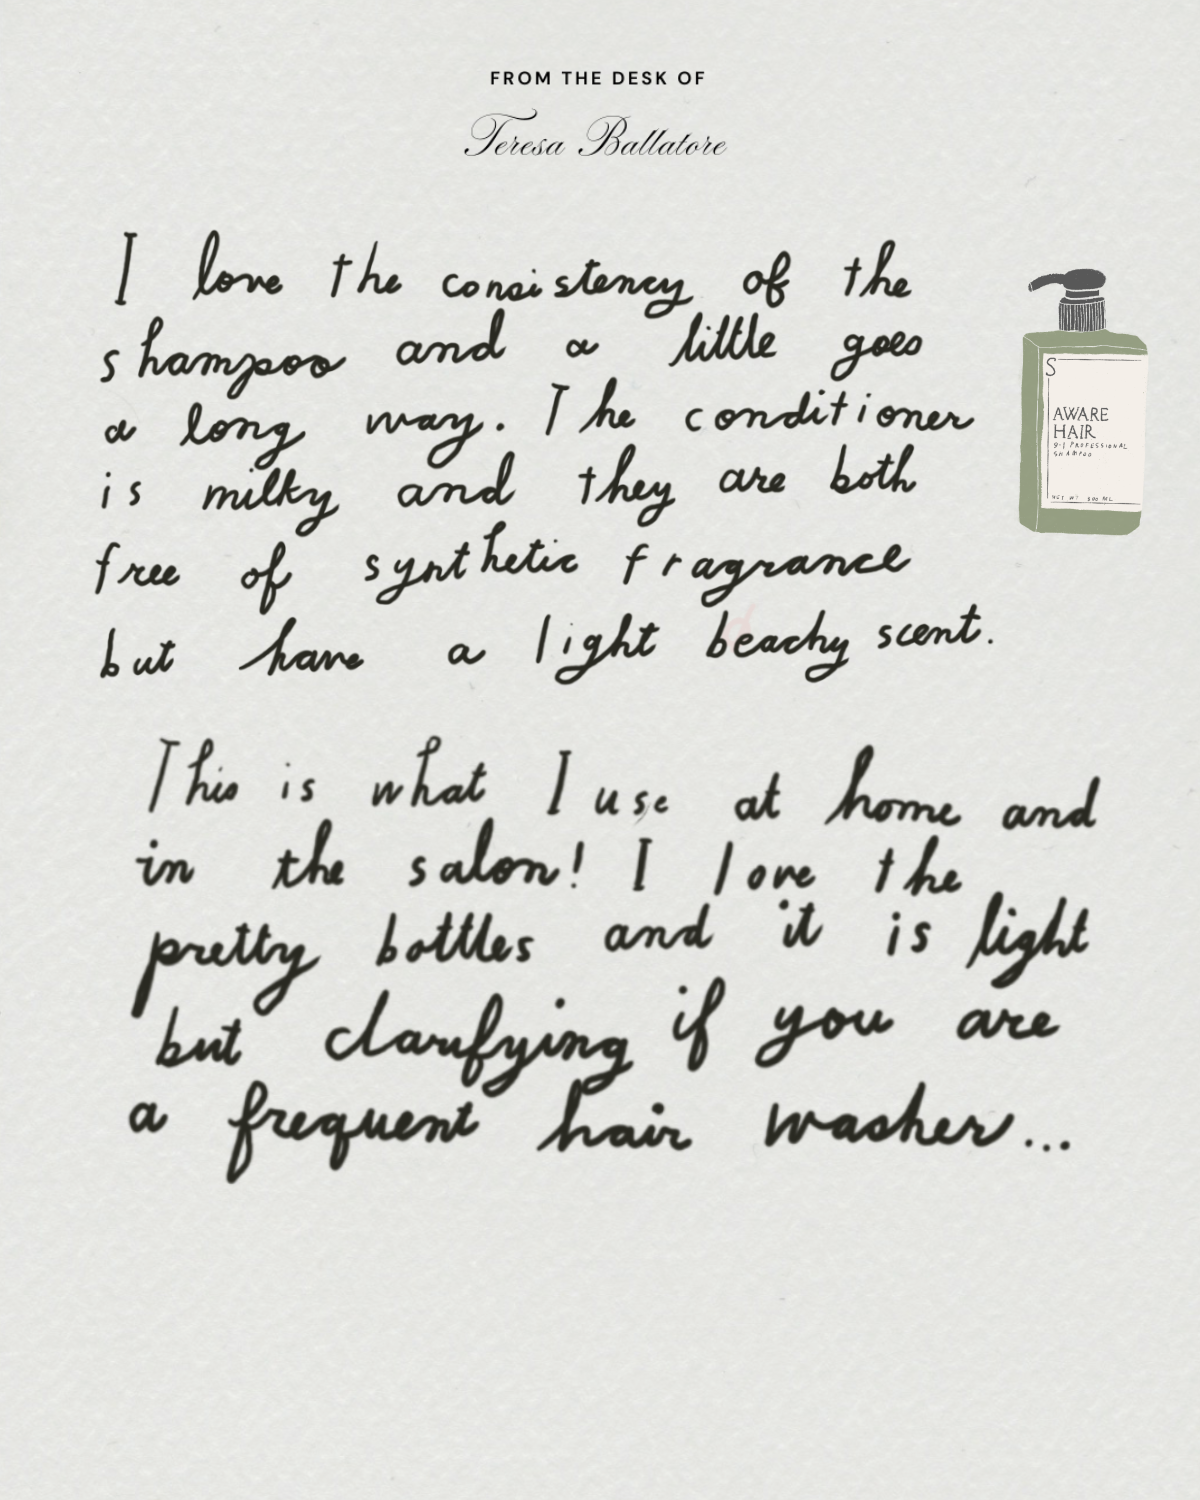 FROM THE DESK OF
Teresa Ballatore
I love the consistency of the
shampoo and a little goes
a long way. The conditioner
is milky and they are both
free of synthetic fragrance
but have a light beachy scent.
S
AWARE
HAIR
9-1 PROFESSIONAL
SHAMPOO
NET WT 500 ML
This is what I use at home and
in the salon! I love the
pretty bottles and it is light
but clarifying if you are
a frequent hair washer...